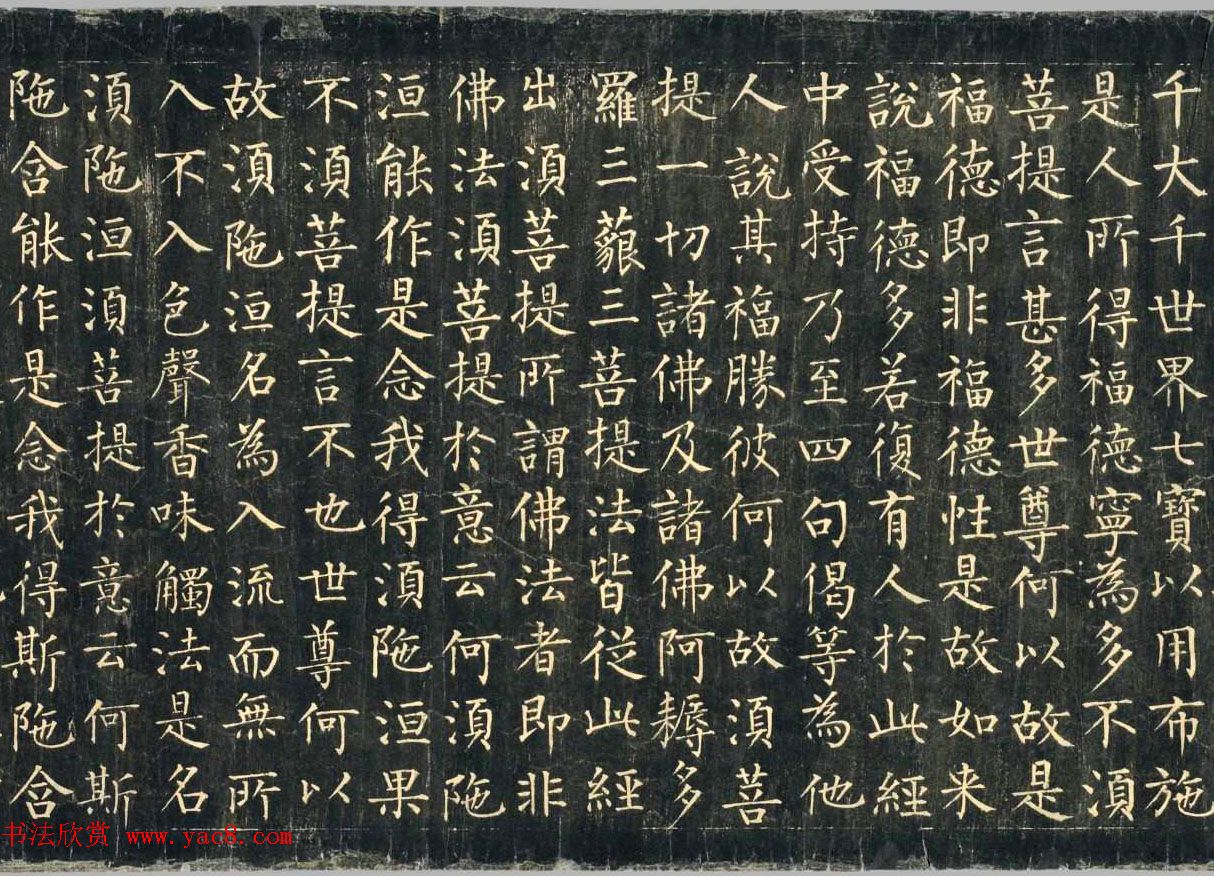 千大千世界七寶以用布施
是人所得福德寧為多不須
菩提言甚多世尊何以故是
福德即非福德性是故如来
說福德多若復有人於此經
中受持乃至四句偈等為他
人說其福勝彼何以故須菩
提一切諸佛及諸佛阿耨多
羅三藐三菩提法皆從此經
出須菩提所謂佛法者即非
佛法須菩提於意云何須陁
洹能作是念我得須陁洹果
不須菩提言不也世尊何以
故須陁洹名為入流而無所
入不入色聲香味觸法是名
須陁洹須菩提於意云何斯
陁含能作是念我得斯陁含
书法欣赏 www.yac8.com